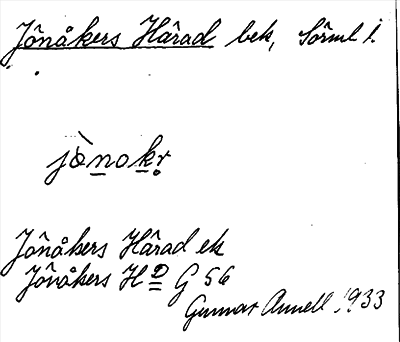 Jönåkers Härad bek, Sörml l.
jònokr
Jönåkers Härad ek
Jönåkers HD G 56
Gunnar Annell 1933